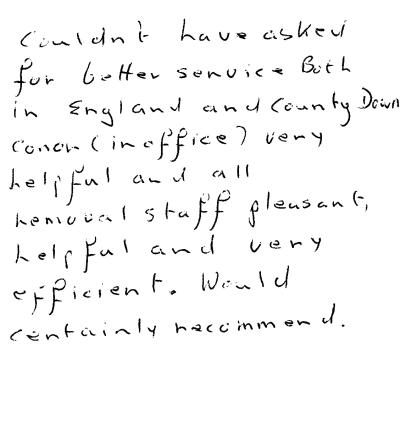 Couldn't have asked
for better service Both
in England and County Down
Conor (in office) very
helpful and all
removal staff pleasant,
helpful and very
efficient. Would
certainly recommend.